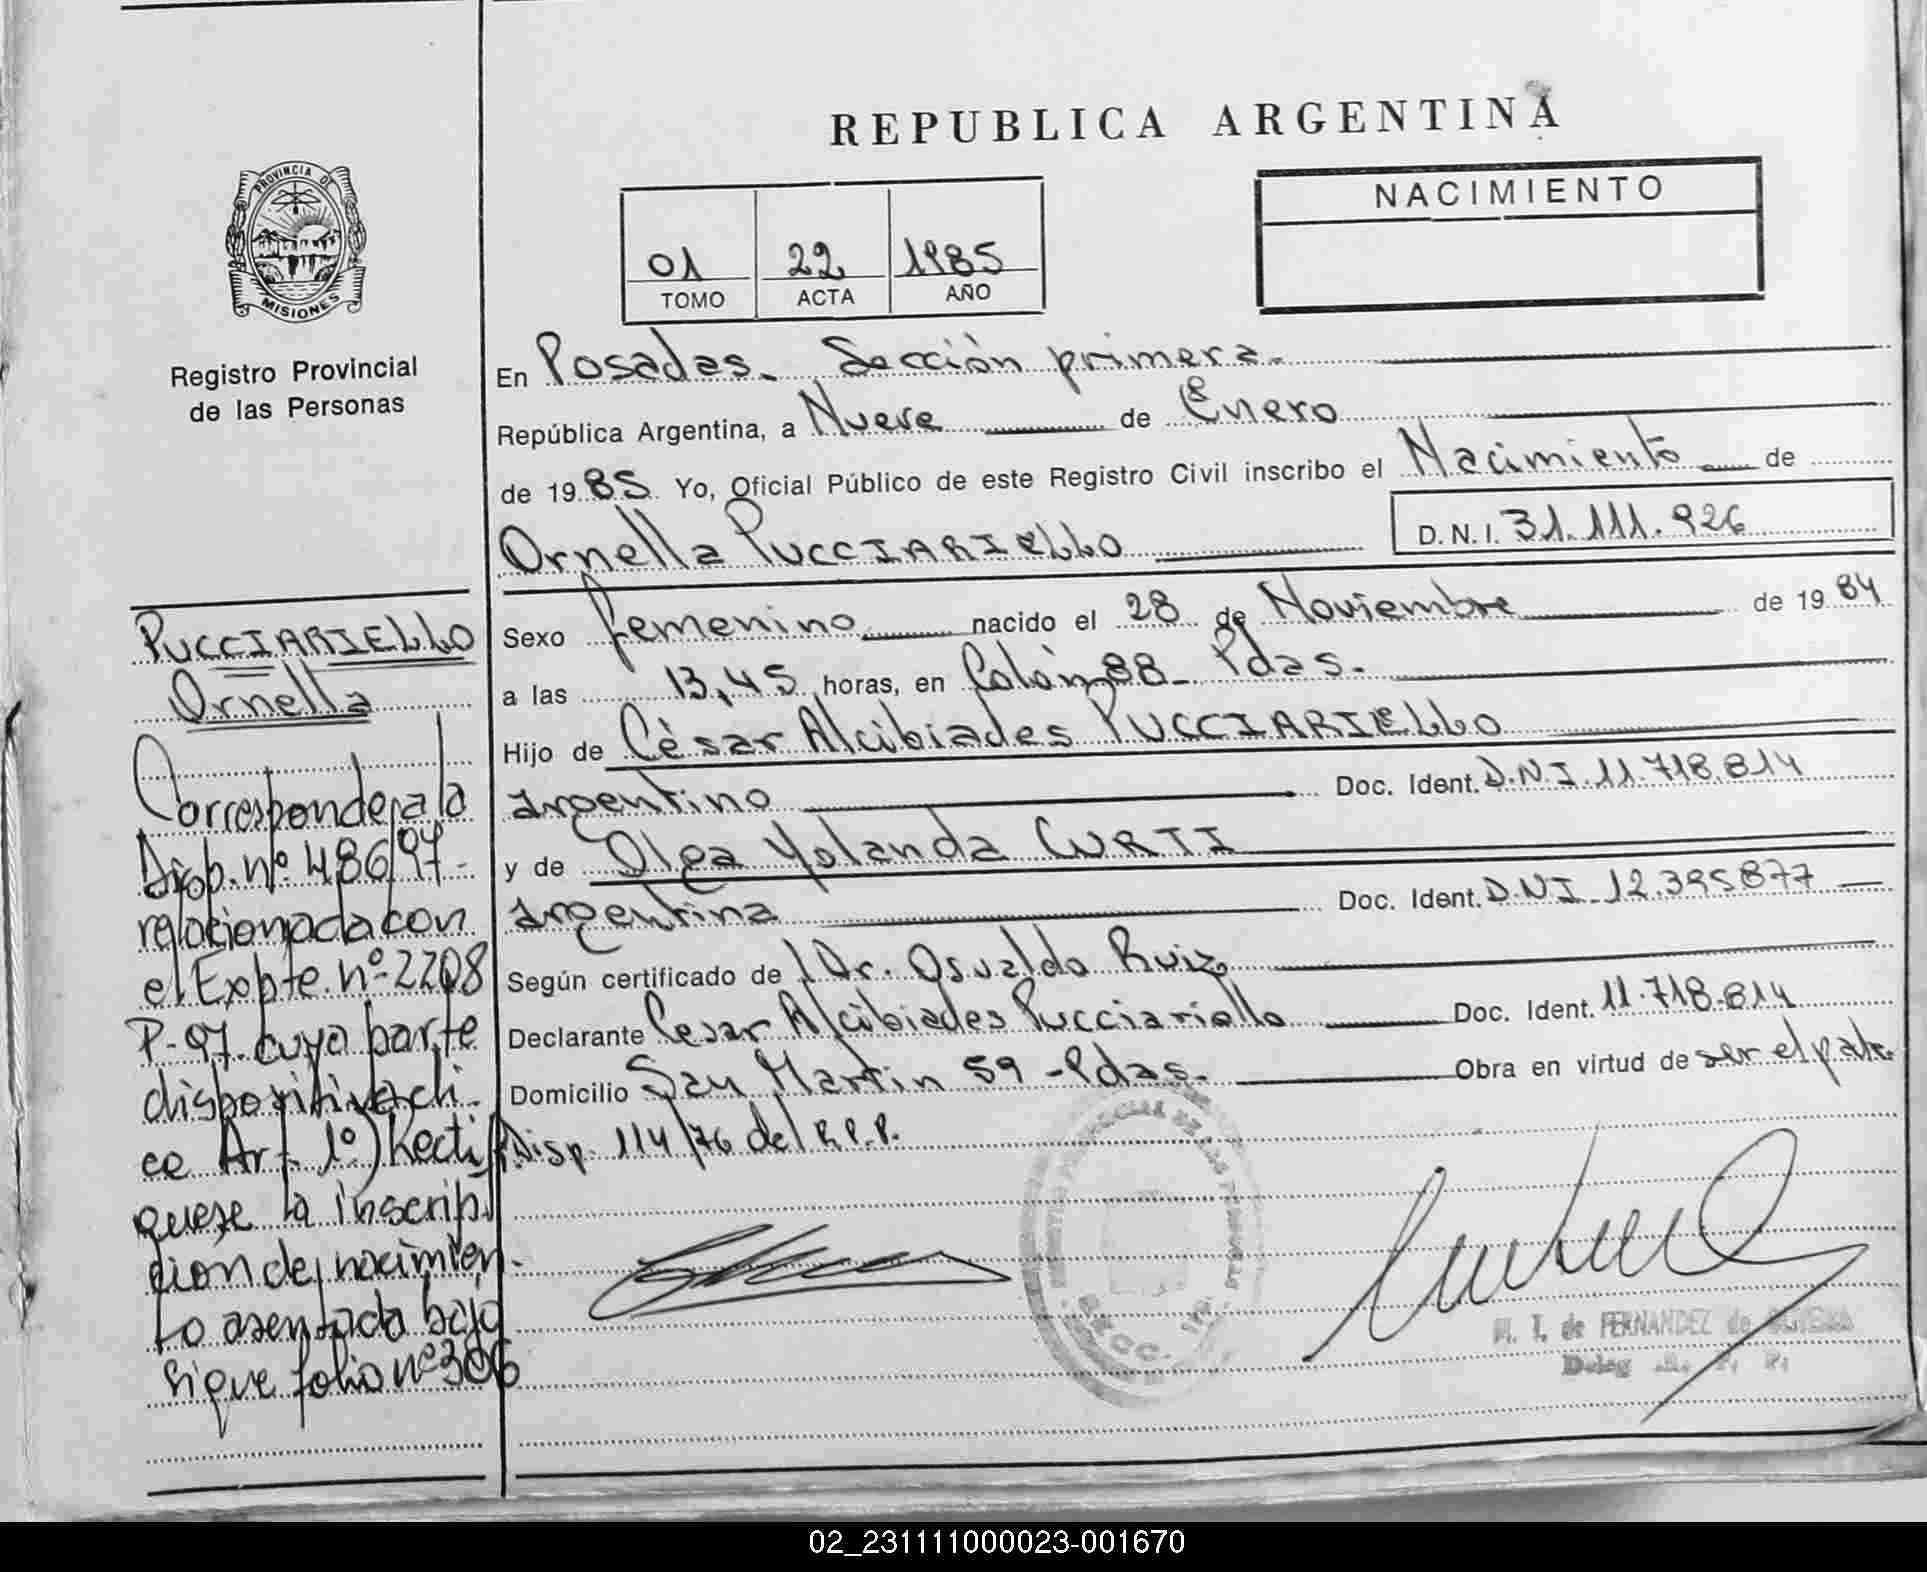 REPUBLICA ARGENTINA
PROVINCIA DE
MISIONES
Registro Provincial
de las Personas
01 22 1985
TOMO ACTA AÑO
NACIMIENTO
En Posadas. Sección primera.
República Argentina, a Nueve de Enero
de 1985 Yo, Oficial Público de este Registro Civil inscribo el Nacimiento de
Ornella PUCCIARIELLO D.N.I. 31.111.926
Sexo femenino nacido el 28 de Noviembre de 1984
a las 13,45 horas, en Colón 88 - Pdas.
Hijo de César Alcibiades PUCCIARIELLO
argentino Doc. Ident. D.N.I. 11.718.814
y de Olga Yolanda CURTI
argentina Doc. Ident. D.N.I. 12.395877
Según certificado de Dr. Osvaldo Ruiz
Declarante Cesar Alcibiades Pucciariello Doc. Ident. 11.718.814
Domicilio San Martin 59 - Pdas. Obra en virtud de ser el padre
Disp. 114/76 del R.P.P.
M. I. de FERNANDEZ de
Deleg
PUCCIARIELLO
Ornella
Corresponde a la
Disp. nº 486/97 -
relacionada con
el Expte. nº 2208
P-97. cuya parte
dispositiva di-
ce Art 1º) Rectif
quese la inscrip
cion de nacimien-
to asentada bajo
Sigue folio nº 306
02_231111000023-001670